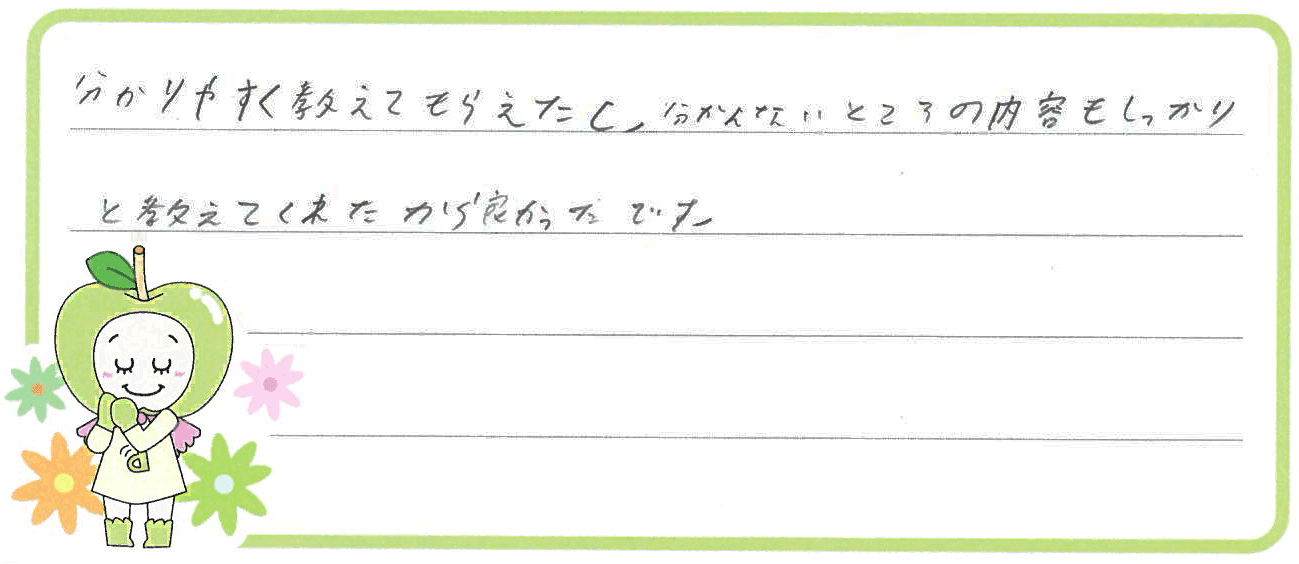 分かりやすく教えてもらえたし、分かんないところの内容もしっかり
と教えてくれたから良かったです。